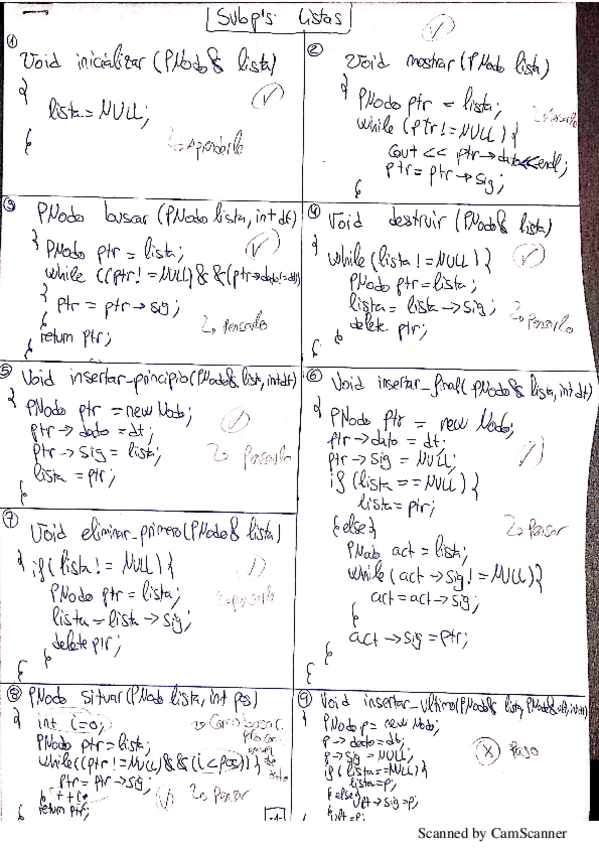 Subp's Listas
① Void inicializar (PNodo& lista)
{
lista = NULL;
}
→ Aprenderlo
② Void mostrar (PNodo lista)
{
PNodo ptr = lista;
while (ptr != NULL) {
cout << ptr→dato<<endl;
ptr = ptr → sig;
}
→ Pensarlo
③ PNodo buscar (PNodo lista, int dt)
{ PNodo ptr = lista;
while ((ptr != NULL) && (ptr→dato != dt))
{
ptr = ptr → sig;
}
return ptr;
}
→ Pensarlo
④ Void destruir (PNodo& lista)
{
while (lista != NULL) {
PNodo ptr = lista;
lista = lista → sig;
delete ptr;
}
}
→ Pensarlo
⑤ Void insertar_principio (PNodo& lista, int dt)
{ PNodo ptr = new Nodo;
ptr → dato = dt;
ptr → sig = lista;
lista = ptr;
}
→ Pensarlo
⑥ Void insertar_final (PNodo& lista, int dt)
{ PNodo ptr = new Nodo;
ptr → dato = dt;
ptr → sig = NULL;
if (lista == NULL) {
lista = ptr;
}else{
PNodo act = lista;
while (act → sig != NULL) {
act = act → sig;
}
act → sig = ptr;
}
}
→ Pensar
⑦ Void eliminar_primero (PNodo& lista)
{ if (lista != NULL) {
PNodo ptr = lista;
lista = lista → sig;
delete ptr;
}
}
→ pensarlo
⑧ PNodo situar (PNodo lista, int pos)
{ int i=0;
PNodo ptr = lista;
while ((ptr != NULL) && (i < pos)) {
ptr = ptr → sig;
++i;
}
return ptr;
→ Como buscar
→ Pensar
-1-
⑨ Void insertar_ultimo (PNodo& lista, PNodo& ult, int dt)
{ PNodo p = new Nodo;
p → dato = dt;
p → sig = NULL;
if (lista == NULL) {
lista = p;
}else{
ult → sig = p;
}
ult = p;
Paso
Scanned by CamScanner